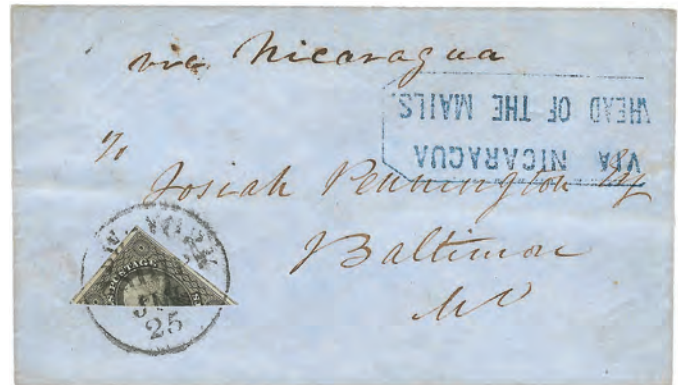 via Nicaragua
VIA NICARAGUA
AHEAD OF THE MAILS.
To
Josiah Pennington Esq
Baltimore
Md
YORK
25
POSTAGE